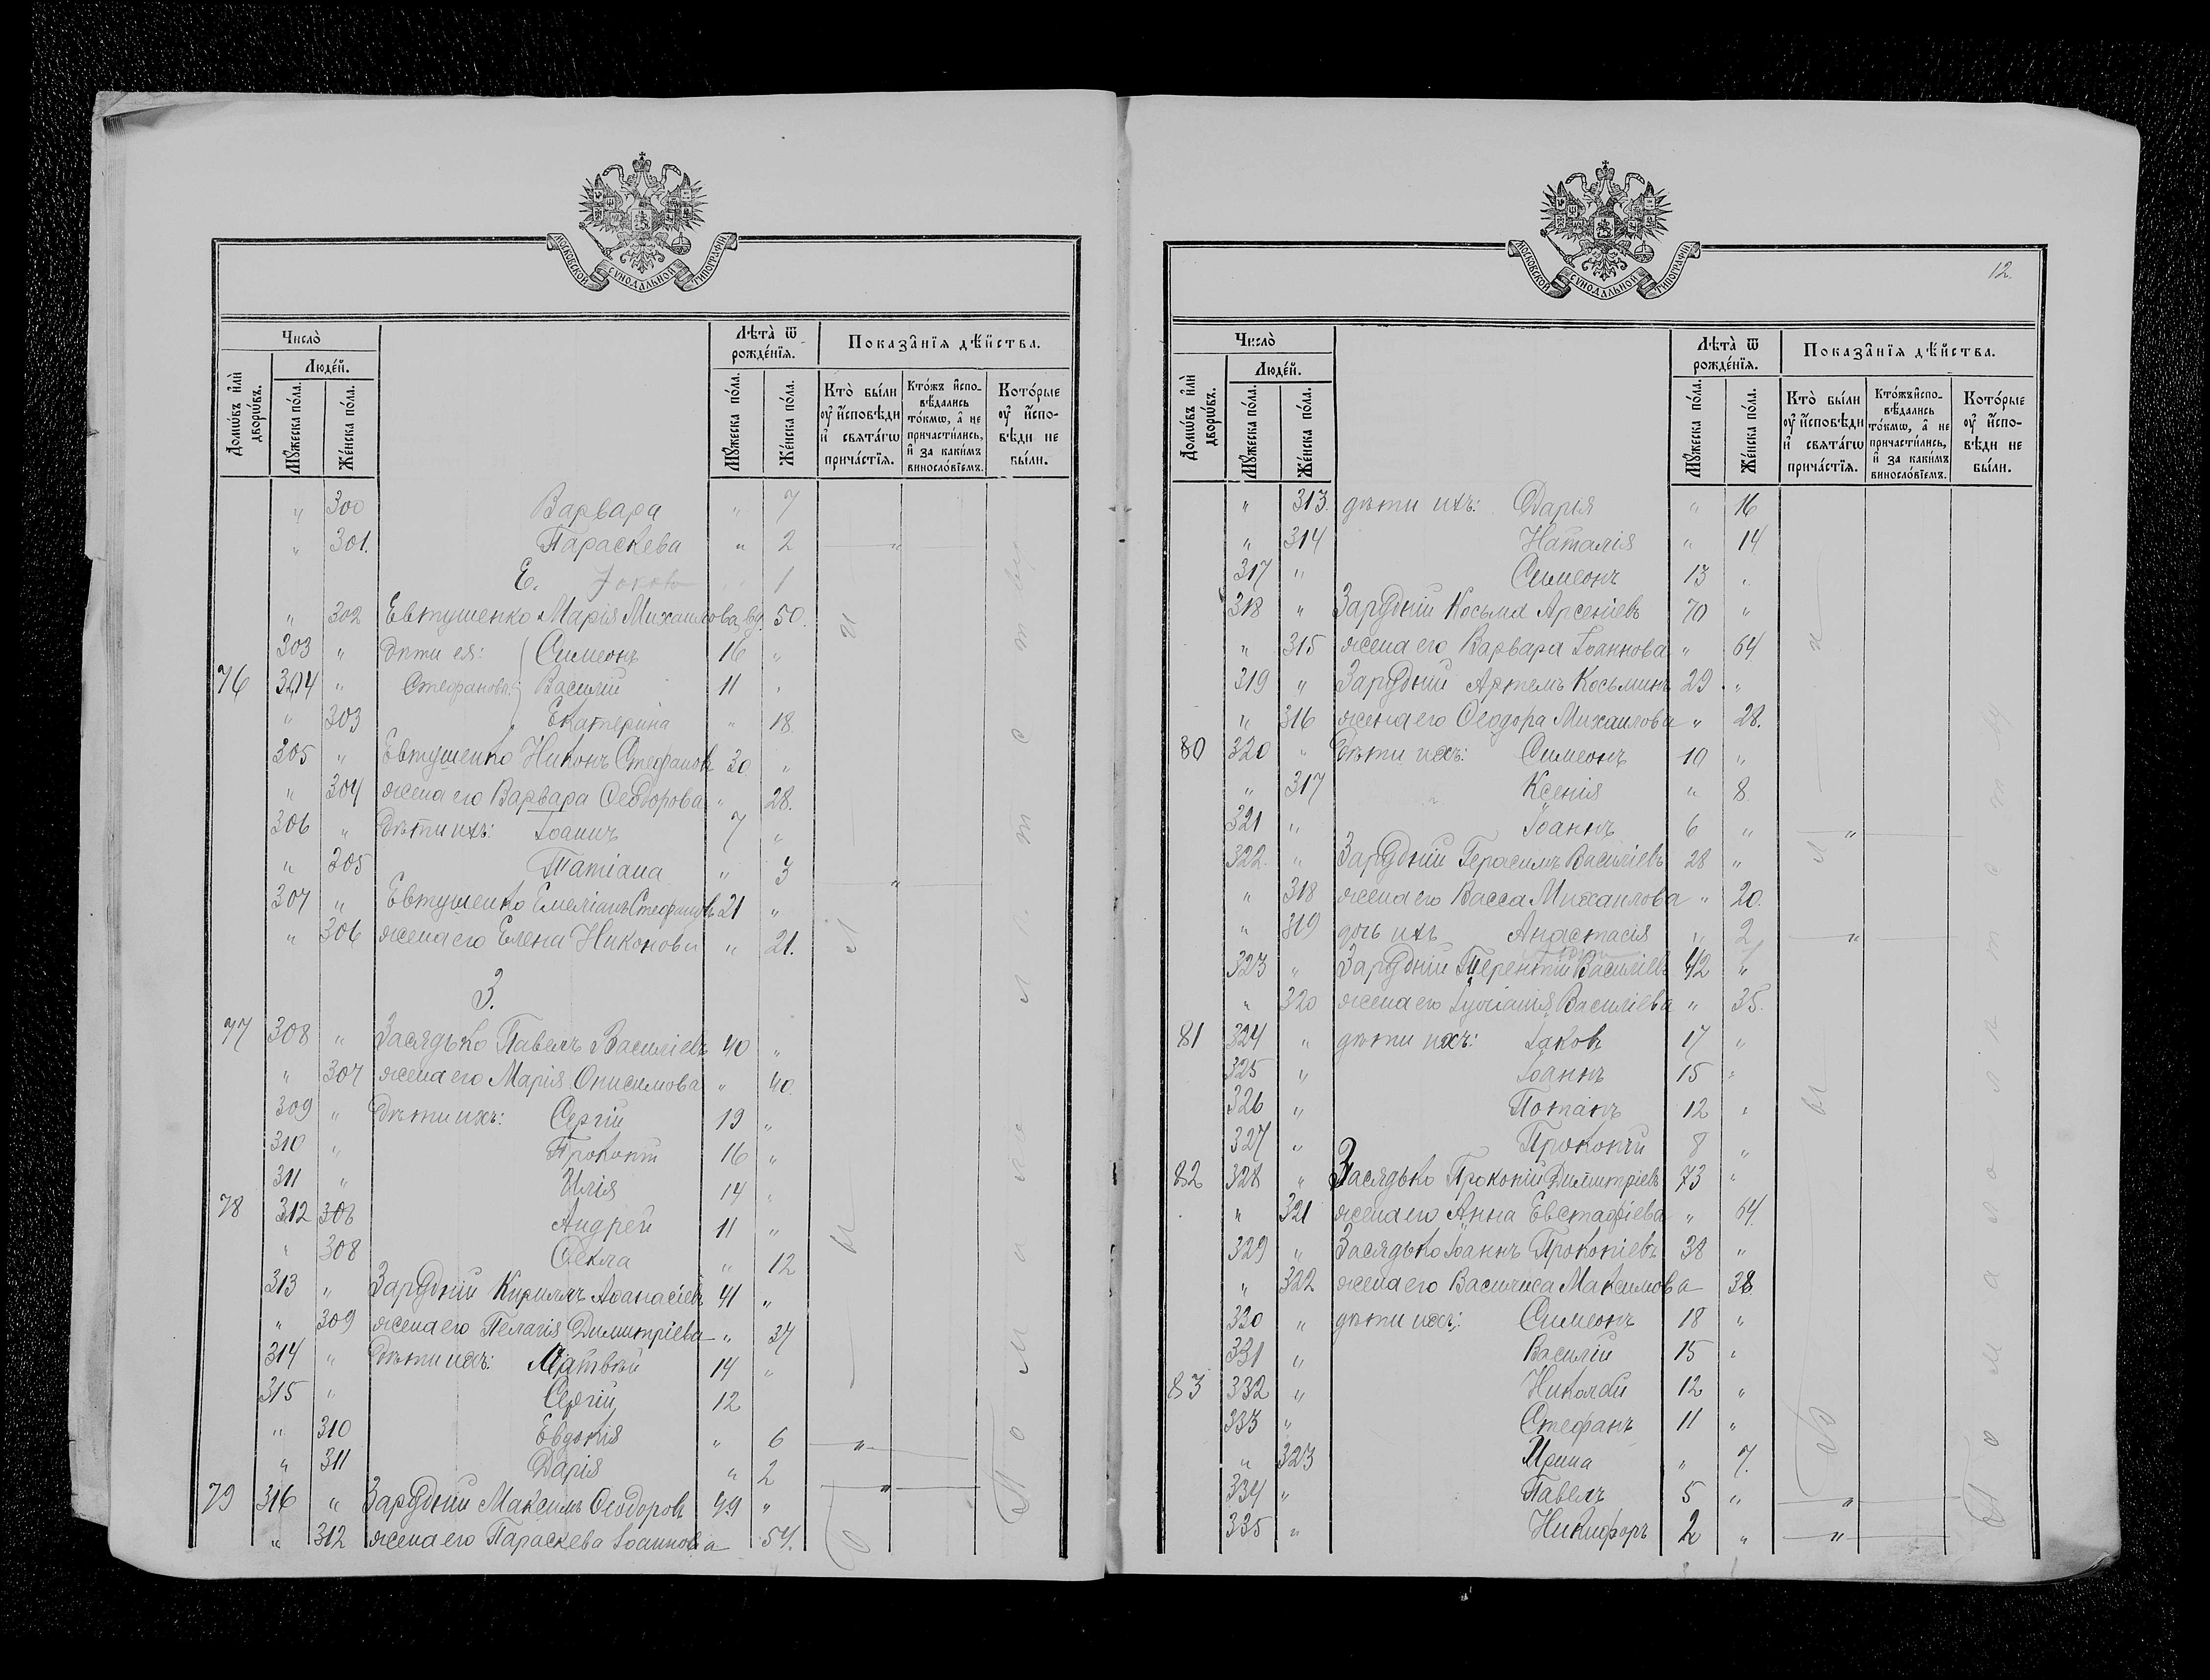 МОСКОВСКОЙ СѴНОДАЛЬНОЙ ТИПОГРАФІИ
Число̀
Лѣта̀ ѿ рожде́нїѧ.
Показа̑нїѧ дѣ́йства.
Домѡ́въ и҆лѝ дворѡ́въ.
Люде́й.
Мꙋ́жеска по́ла.
Же́нска по́ла.
Мꙋ́жеска по́ла.
Же́нска по́ла.
Кто̀ бы́ли ᲂу҆ и҆сповѣди и҆ свѧта́гѡ прича́стїѧ.
Кто́жъ и҆спо-вѣ́дались то́кмѡ, а҆ не причасти́лись, и҆ за каки́мъ винослові́емъ.
Кото́рые ᲂу҆ и҆спо-вѣди не бы́ли.
" 300 Варвара " 7
" 301. Параскева " 2 "
Е. Іаковъ " 1
" 302 Евтушенко Марія Михаилова, вд. " 50.
303 " Дѣти ея: Симеонъ 16 "
76 304 " Стефановы: Василій 11 "
" 303 Екатерина " 18.
305 " Евтушенко Никонъ Стефановъ 30 "
" 304 жена его Варвара Ѳеодорова " 28.
306 " Дѣти ихъ: Іоаннъ 7 "
" 305 Татіана " 3 "
307 " Евтушенко Емеліанъ Стефановъ 21 "
" 306 жена его Елена Никонова " 21.
З.
77 308 " Засядько Павелъ Василіевъ 40 "
" 307 жена его Марія Онисимова " 40.
309 " Дѣти ихъ: Сергій 19 "
310 " Прокопій 16 "
311 " Илія 14 "
78 312 308 Андрей 11 "
" 308 Ѳекла " 12
313 " Зарудній Кириллъ Аѳанасіевъ 41 "
" 309 жена его Пелагія Димитріева " 37
314 " Дѣти ихъ: Матвѣй 14 "
315 " Сергій 12
" 310 Евдокія " 6 "
" 311 Дарія " 2 "
79 316 " Зарудній Максимъ Ѳеодоровъ 49 "
" 312 жена его Параскева Іоаннова 54.
МОСКОВСКОЙ СѴНОДАЛЬНОЙ ТИПОГРАФІИ
12.
Число̀
Лѣта̀ ѿ рожде́нїѧ.
Показа̑нїѧ дѣ́йства.
Домѡ́въ и҆лѝ дворѡ́въ.
Люде́й.
Мꙋ́жеска по́ла.
Же́нска по́ла.
Мꙋ́жеска по́ла.
Же́нска по́ла.
Кто̀ бы́ли ᲂу҆ и҆сповѣди и҆ свѧта́гѡ прича́стїѧ.
Кто́жъ и҆спо-вѣ́дались то́кмѡ, а҆ не причасти́лись, и҆ за каки́мъ винослові́емъ.
Кото́рые ᲂу҆ и҆спо-вѣди не бы́ли.
" 313. дѣти ихъ: Дарія " 16
" 314 Наталія " 14
317 " Симеонъ 13 "
318 " Зарудній Косьма Арсеніевъ 70 "
" 315 жена его Варвара Іоаннова " 64.
319 " Зарудній Артемъ Косьминъ 29 "
" 316 жена его Ѳеодора Михаилова " 28.
80 320 " Дѣти ихъ: Симеонъ 10 "
" 317 Ксенія " 8.
321 " Іоаннъ 6 " "
322. " Зарудній Герасимъ Василіевъ 28 "
" 318 жена его Васса Михаилова " 20.
" 319 дочь ихъ Анастасія " 2 "
323 " Зарудній Терентій Василіевъ 42 "
" 320 жена его Іуліанія Василіева " 35.
81 324 " дѣти ихъ: Іаковъ 17 "
325 " Іоаннъ 15 "
326 " Потапъ 12 "
327 " Прокопій 8 "
82 328 " Засядько Прокопій Димитріевъ 73 "
" 321 жена его Анна Евстафіева " 64.
329 " Засядько Іоаннъ Прокопіевъ 38 "
" 322 жена его Василиса Максимова 38.
330 " дѣти ихъ: Симеонъ 18 "
331 " Василій 15 "
83 332 " Николай 12 "
333 " Стефанъ 11 "
" 323 Ирина " 7.
334 " Павелъ 5 " "
335 " Никифоръ 2 " "